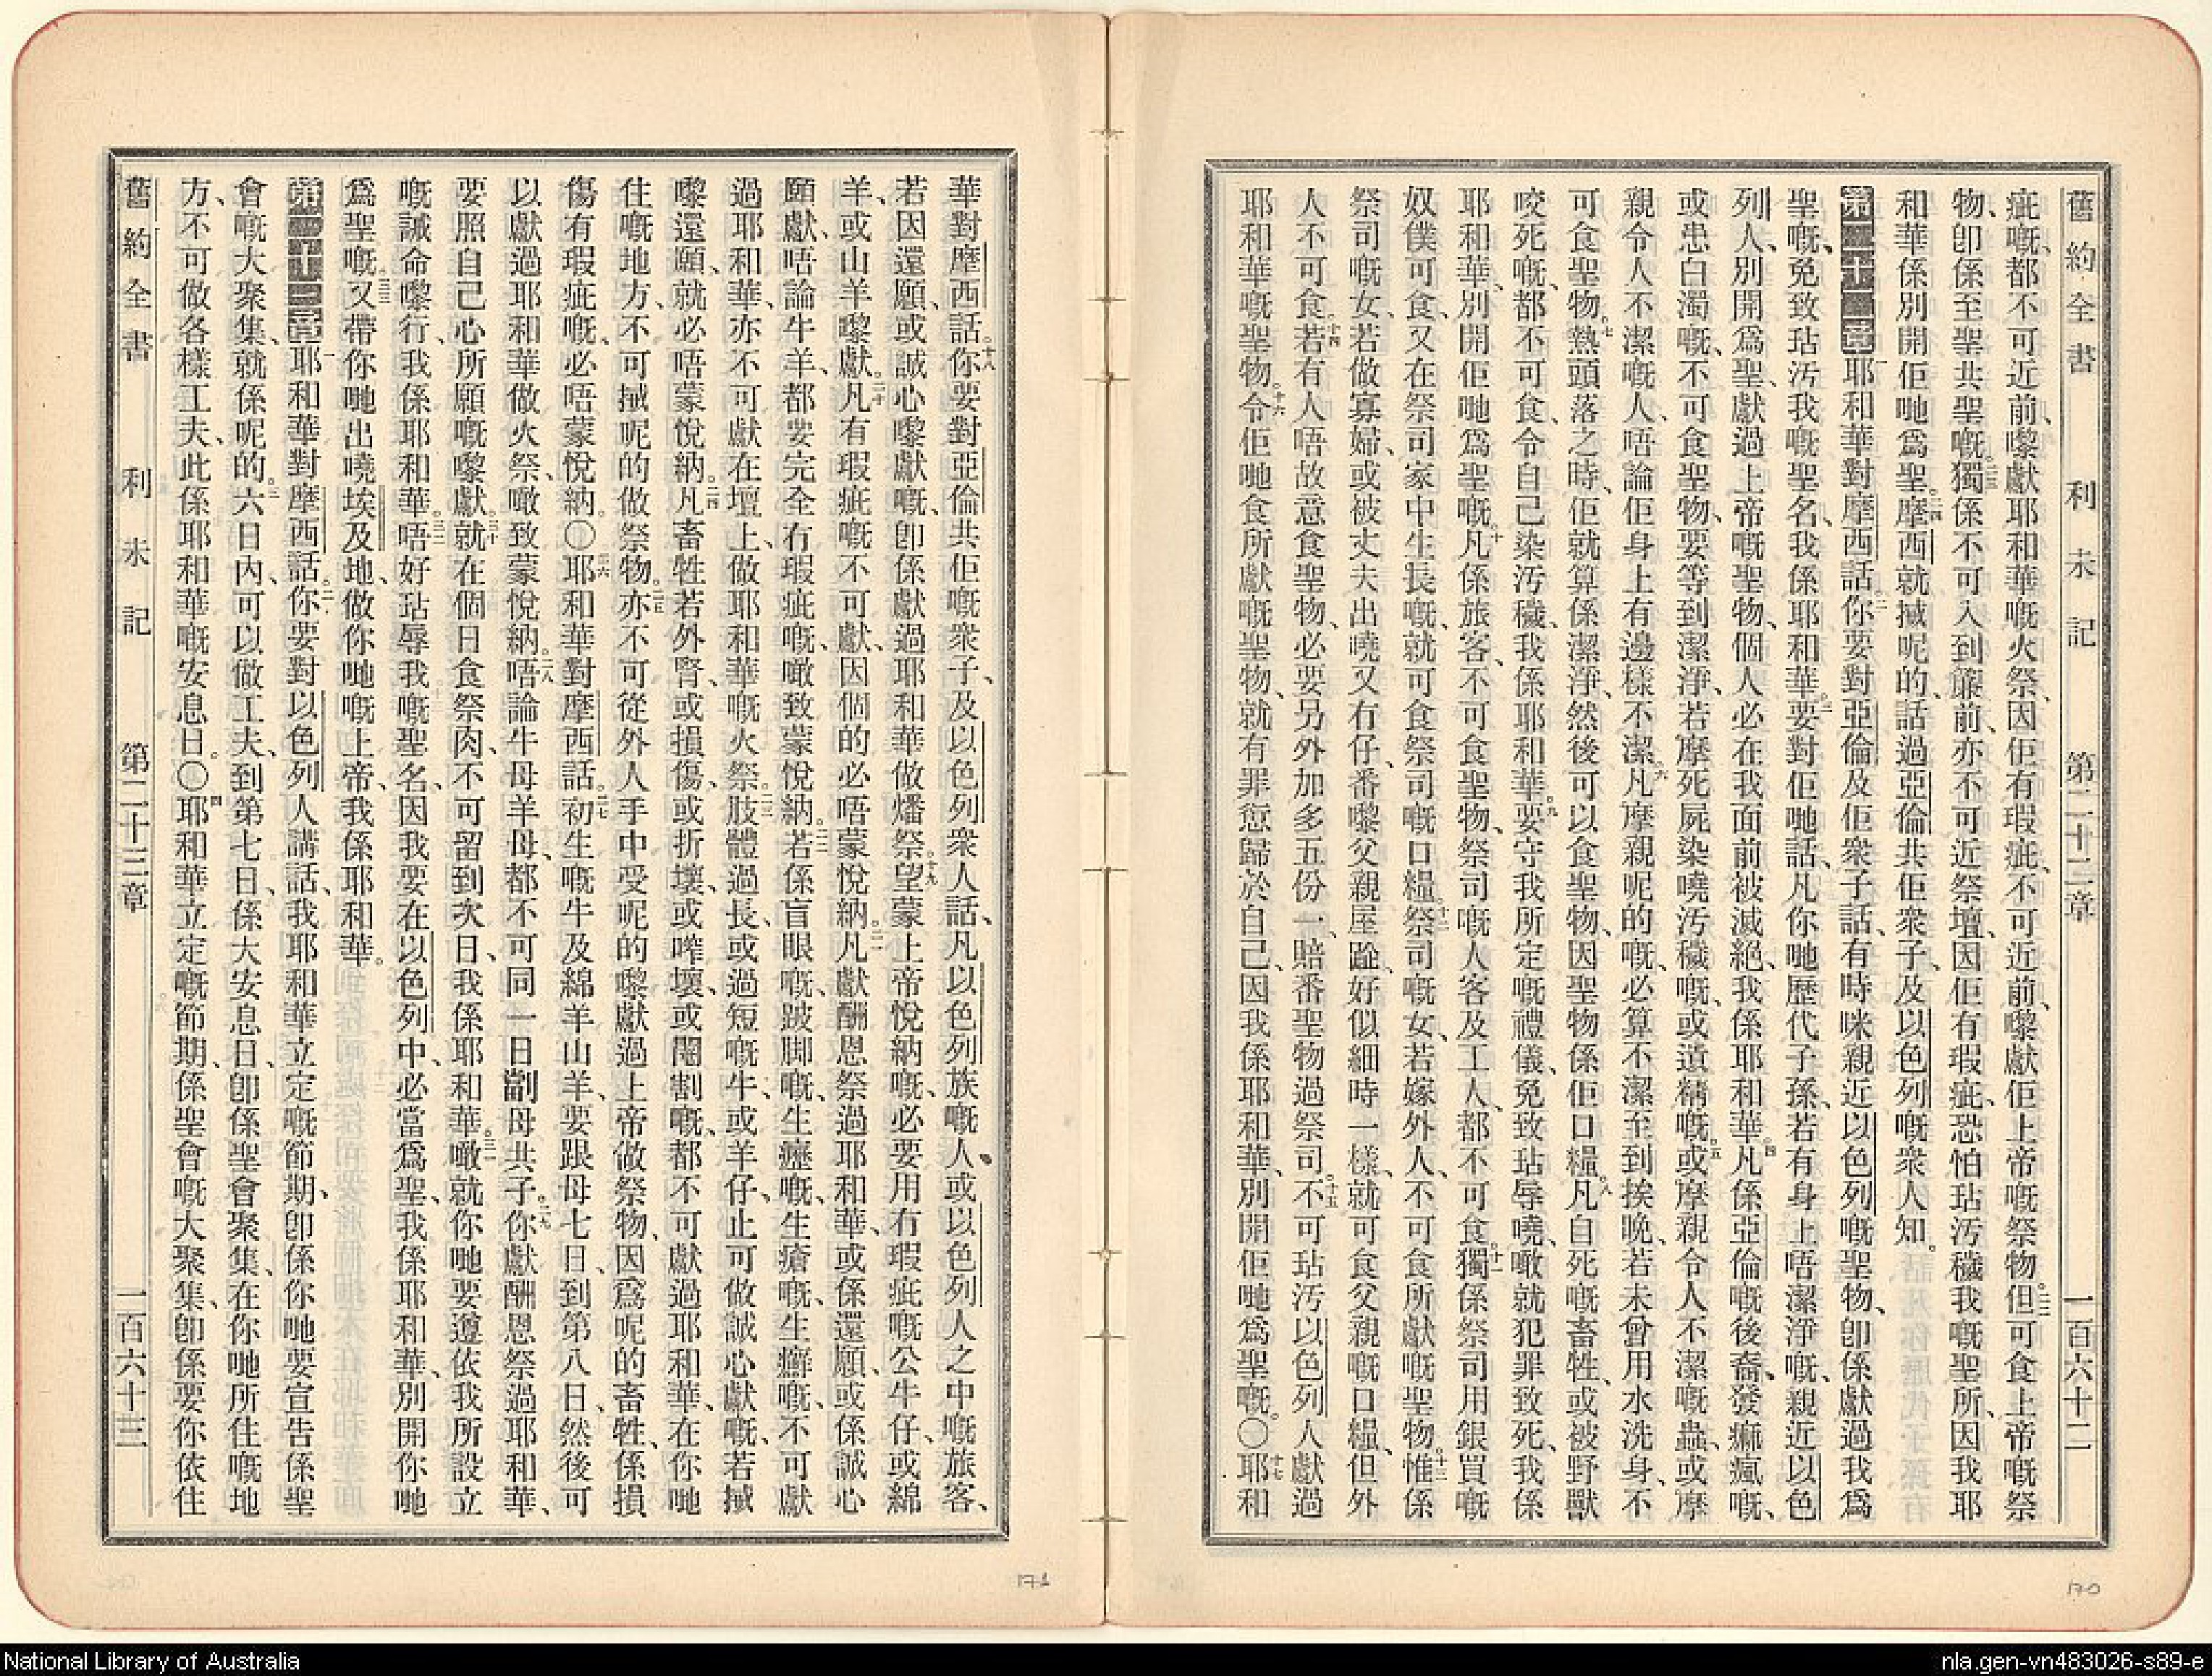 舊約全書 利未記 第二十二章 一百六十二
疵嘅、都不可近前、嚟獻耶和華嘅火祭、因佢有瑕疵、不可近前、嚟獻佢上帝嘅祭物。二二但可食上帝嘅祭
物、卽係至聖共聖嘅。二三獨係不可入到簾前、亦不可近祭壇、因佢有瑕疵、恐怕玷汚穢我嘅聖所、因我耶
和華係別開佢哋爲聖。二四摩西就搣呢的話過亞倫共佢衆子、及以色列嘅衆人知。
第二十二章一耶和華對摩西話。二你要對亞倫及佢衆子話、有時咪親近以色列嘅聖物、卽係獻過我爲
聖嘅、免致玷汚我嘅聖名、我係耶和華。三要對佢哋話、凡你哋歷代子孫、若有身上唔潔淨嘅、親近以色
列人、別開爲聖、獻過上帝嘅聖物、個人必在我面前被滅絕、我係耶和華。四凡係亞倫嘅後裔、發痲瘋嘅、
或患白濁嘅、不可食聖物、要等到潔淨、若摩死屍染嘵汚穢嘅、或遺精嘅。五或摩親令人不潔嘅蟲、或摩
親令人不潔嘅人、唔論佢身上有邊樣不潔。六凡摩親呢的嘅、必算不潔至到挨晚、若未曾用水洗身、不
可食聖物。七熱頭落之時、佢就算係潔淨、然後可以食聖物、因聖物係佢口糧。八凡自死嘅畜牲、或被野獸
咬死嘅、都不可食、令自己染汚穢、我係耶和華。九要守我所定嘅禮儀、免致玷辱嘵、噉就犯罪致死、我係
耶和華、別開佢哋爲聖嘅。十凡係旅客、不可食聖物、祭司嘅人客及工人、都不可食。十一獨係祭司用銀買嘅
奴僕可食、又在祭司家中生長嘅、就可食祭司嘅口糧。十二祭司嘅女、若嫁外人、不可食所獻嘅聖物。十三惟係
祭司嘅女、若做寡婦、或被丈夫出嘵又冇仔、番嚟父親屋跄好似細時一樣、就可食父親嘅口糧、但外
人不可食。十四若有人唔故意食聖物、必要另外加多五份一、賠番聖物過祭司。十五不可玷汚以色列人獻過
耶和華嘅聖物。十六令佢哋食所獻嘅聖物、就有罪愆歸於自己、因我係耶和華、別開佢哋爲聖嘅。〇十七耶和
華對摩西話。十八你要對亞倫共佢嘅衆子、及以色列衆人話、凡以色列族嘅人、或以色列人之中嘅旅客、
若因還願、或誠心嚟獻嘅、卽係獻過耶和華做燔祭。十九望蒙上帝悅納嘅、必要用冇瑕疵嘅公牛仔、或綿
羊、或山羊嚟獻。二十凡有瑕疵嘅不可獻、因個的必唔蒙悅納。二一凡獻酬恩祭過耶和華、或係還願、或係誠心
願獻、唔論牛羊、都要完全冇瑕疵嘅、噉致蒙悅納。二二若係盲眼嘅、跛脚嘅、生癧嘅、生瘡嘅、生癬嘅、不可獻
過耶和華、亦不可獻在壇上、做耶和華嘅火祭。二三肢體過長、或過短嘅牛、或羊仔、止可做誠心獻嘅、若搣
嚟還願、就必唔蒙悅納。二四凡畜牲若外腎、或損傷、或折壞、或嘩壞、或閹割嘅、都不可獻過耶和華、在你哋
住嘅地方、不可搣呢的做祭物。二五亦不可從外人手中受呢的嚟獻過上帝做祭物、因爲呢的畜牲、係損
傷有瑕疵嘅、必唔蒙悅納。〇二六耶和華對摩西話。二七初生嘅牛及綿羊山羊、要跟母七日、到第八日、然後可
以獻過耶和華做火祭、噉致蒙悅納。二八唔論牛母羊母、都不可同一日劏母共子。二九你獻酬恩祭過耶和華、
要照自己心所願嘅嚟獻。三十就在個日食祭肉、不可留到次日、我係耶和華。三一噉就你哋要遵依我所設立
嘅誡命嚟行、我係耶和華。三二唔好玷辱我嘅聖名、因我要在以色列中、必當爲聖、我係耶和華、別開你哋
爲聖嘅。三三又帶你哋出嘵埃及地、做你哋嘅上帝、我係耶和華。
第二十三章一耶和華對摩西話。二你要對以色列人講話、我耶和華立定嘅節期、卽係你哋要宣告係聖
會嘅大聚集、就係呢的。三六日內、可以做工夫、到第七日、係大安息日、卽係聖會聚集、在你哋所住嘅地
方、不可做各樣工夫、此係耶和華嘅安息日。〇四耶和華立定嘅節期、係聖會嘅大聚集、卽係要你依住
舊約全書 利未記 第二十三章 一百六十三
170
171
National Library of Australia
nla.gen-vn483026-s89-e